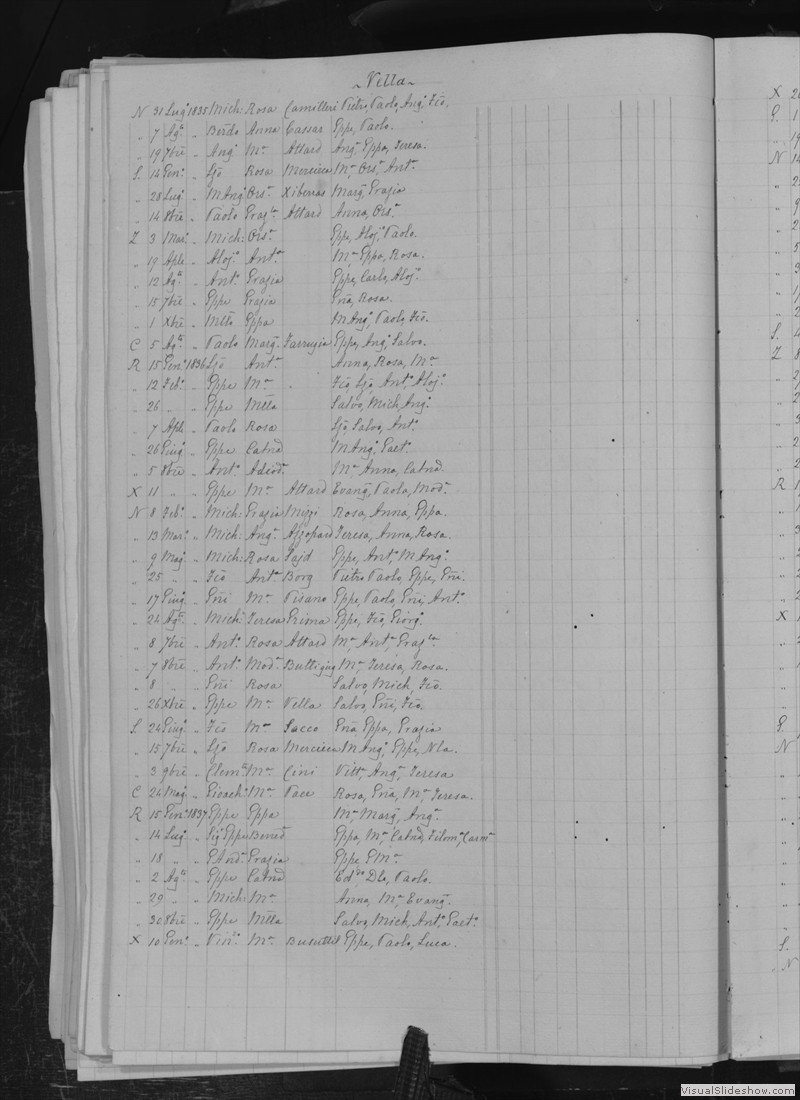 ~ Vella ~
N 31 Lug.º 1835 Mich: Rosa Camilleri Pietro, Paolo, Ang.º Fcõ.
„ 7 Ag.º „ Berdo Anna Cassar Eppe, Paolo.
„ 19 7bre „ Ang.º M.ª Attard Ang.º, Eppa, Teresa.
S. 14 Gen.º „ Sjõ Rosa Mercieca M.ª Ors.ª, Ant.ª
„ 28 Lug.º „ M Ang.º Ors.ª Xiberras Marg.ª, Grazia
„ 14 8bre „ Paolo Graz.la Attard Anna, Ors.ª
Z 3 Mar.º „ Mich: Ors.ª Eppe, Aloj.º, Paolo.
„ 19 Aple „ Aloj.º Ant.ª M.ª Eppa, Rosa.
„ 12 Ag.º „ Ant.º Grazia Eppe, Carlo, Aloj.º
„ 15 7bre „ Eppe Grazia Gña, Rosa.
„ 1 Xbre „ Mtto Eppa M Ang.º, Paolo, Fcõ.
C 5 Ag.º „ Paolo Marg.ª Farrugia Eppe, Ang.º, Salvo.
R 15 Gen.º 1836 Sjõ Ant.ª Anna, Rosa, M.ª
„ 12 Feb.º „ Eppe M.ª „ Fcõ, Sjõ, Ant.º, Aloj.º
„ 26 „ „ Eppe Mtta Salvo, Mich, Ang.º
„ 7 Aple „ Paolo Rosa Sjõ, Salvo, Ant.º
„ 26 Giug.º „ Eppe Catna M Ang.º, Gaet.º
„ 5 8bre „ Ant.º Adeod.ª M.ª Anna, Catna.
X 11 „ „ Eppe M.ª Attard Evang.ª, Paola, Mod.ª
N 8 Feb.º „ Mich: Grazia Myzzi Rosa, Anna, Eppa.
„ 13 Mar.º „ Mich: Ang.ª Azzopard Teresa, Anna, Rosa.
„ 9 Mag.º „ Mich: Rosa Sajd Eppe, Ant.º, M Ang.º
„ 25 „ „ Fcõ Ant.ª Borg Pietro Paolo, Eppe, Gñi.
„ 17 Giug.º „ Gñi M.ª Pisano Eppe, Paolo, Gñi, Ant.º
„ 24 Ag.º „ Mich: Teresa Grima Eppe, Fcõ, Giorg.º
„ 8 7bre „ Ant.º Rosa Attard M.ª Ant.ª, Graz.la
„ 7 8bre „ Ant.º Mod.ª Buttigieg M.ª Teresa, Rosa.
„ 8 „ „ Gñi Rosa Salvo, Mich, Fcõ.
„ 26 Xbre „ Eppe M.ª Vella Salvo, Gñi, Fcõ.
S. 24 Giug.º „ Fcõ M.ª Sacco Gña Eppa, Grazia
„ 15 7bre „ Sjõ Rosa Mercieca M Ang.º, Eppe, Nla.
„ 3 9bre „ Clem.te M.ª Cini Vitt.ª, Ang.ª, Teresa
C 24 Mag.º „ Gioach.º M.ª Pace Rosa, Gña, M.ª Teresa.
R 15 Gen.º 1837 Eppe Eppa M.ª Marg.ª, Ang.ª
„ 14 Lug.º „ Sig.r Eppe Bened.ª Eppa, M.ª Catna, Filom.ª, Carm.ª
„ 18 „ „ G And.ª Grazia Eppe G M.ª
„ 2 Ag.º „ Eppe Catna Ed.do, Dlo, Paolo.
„ 29 „ „ Mich: M.ª Anna, M.ª Evang.ª
„ 30 8bre „ Eppe Mtta Salvo, Mich, Ant.º, Gaet.º
X 10 Gen.º „ Vin.º M.ª Busuttil Eppe, Paolo, Luca.
VisualSlideshow.com